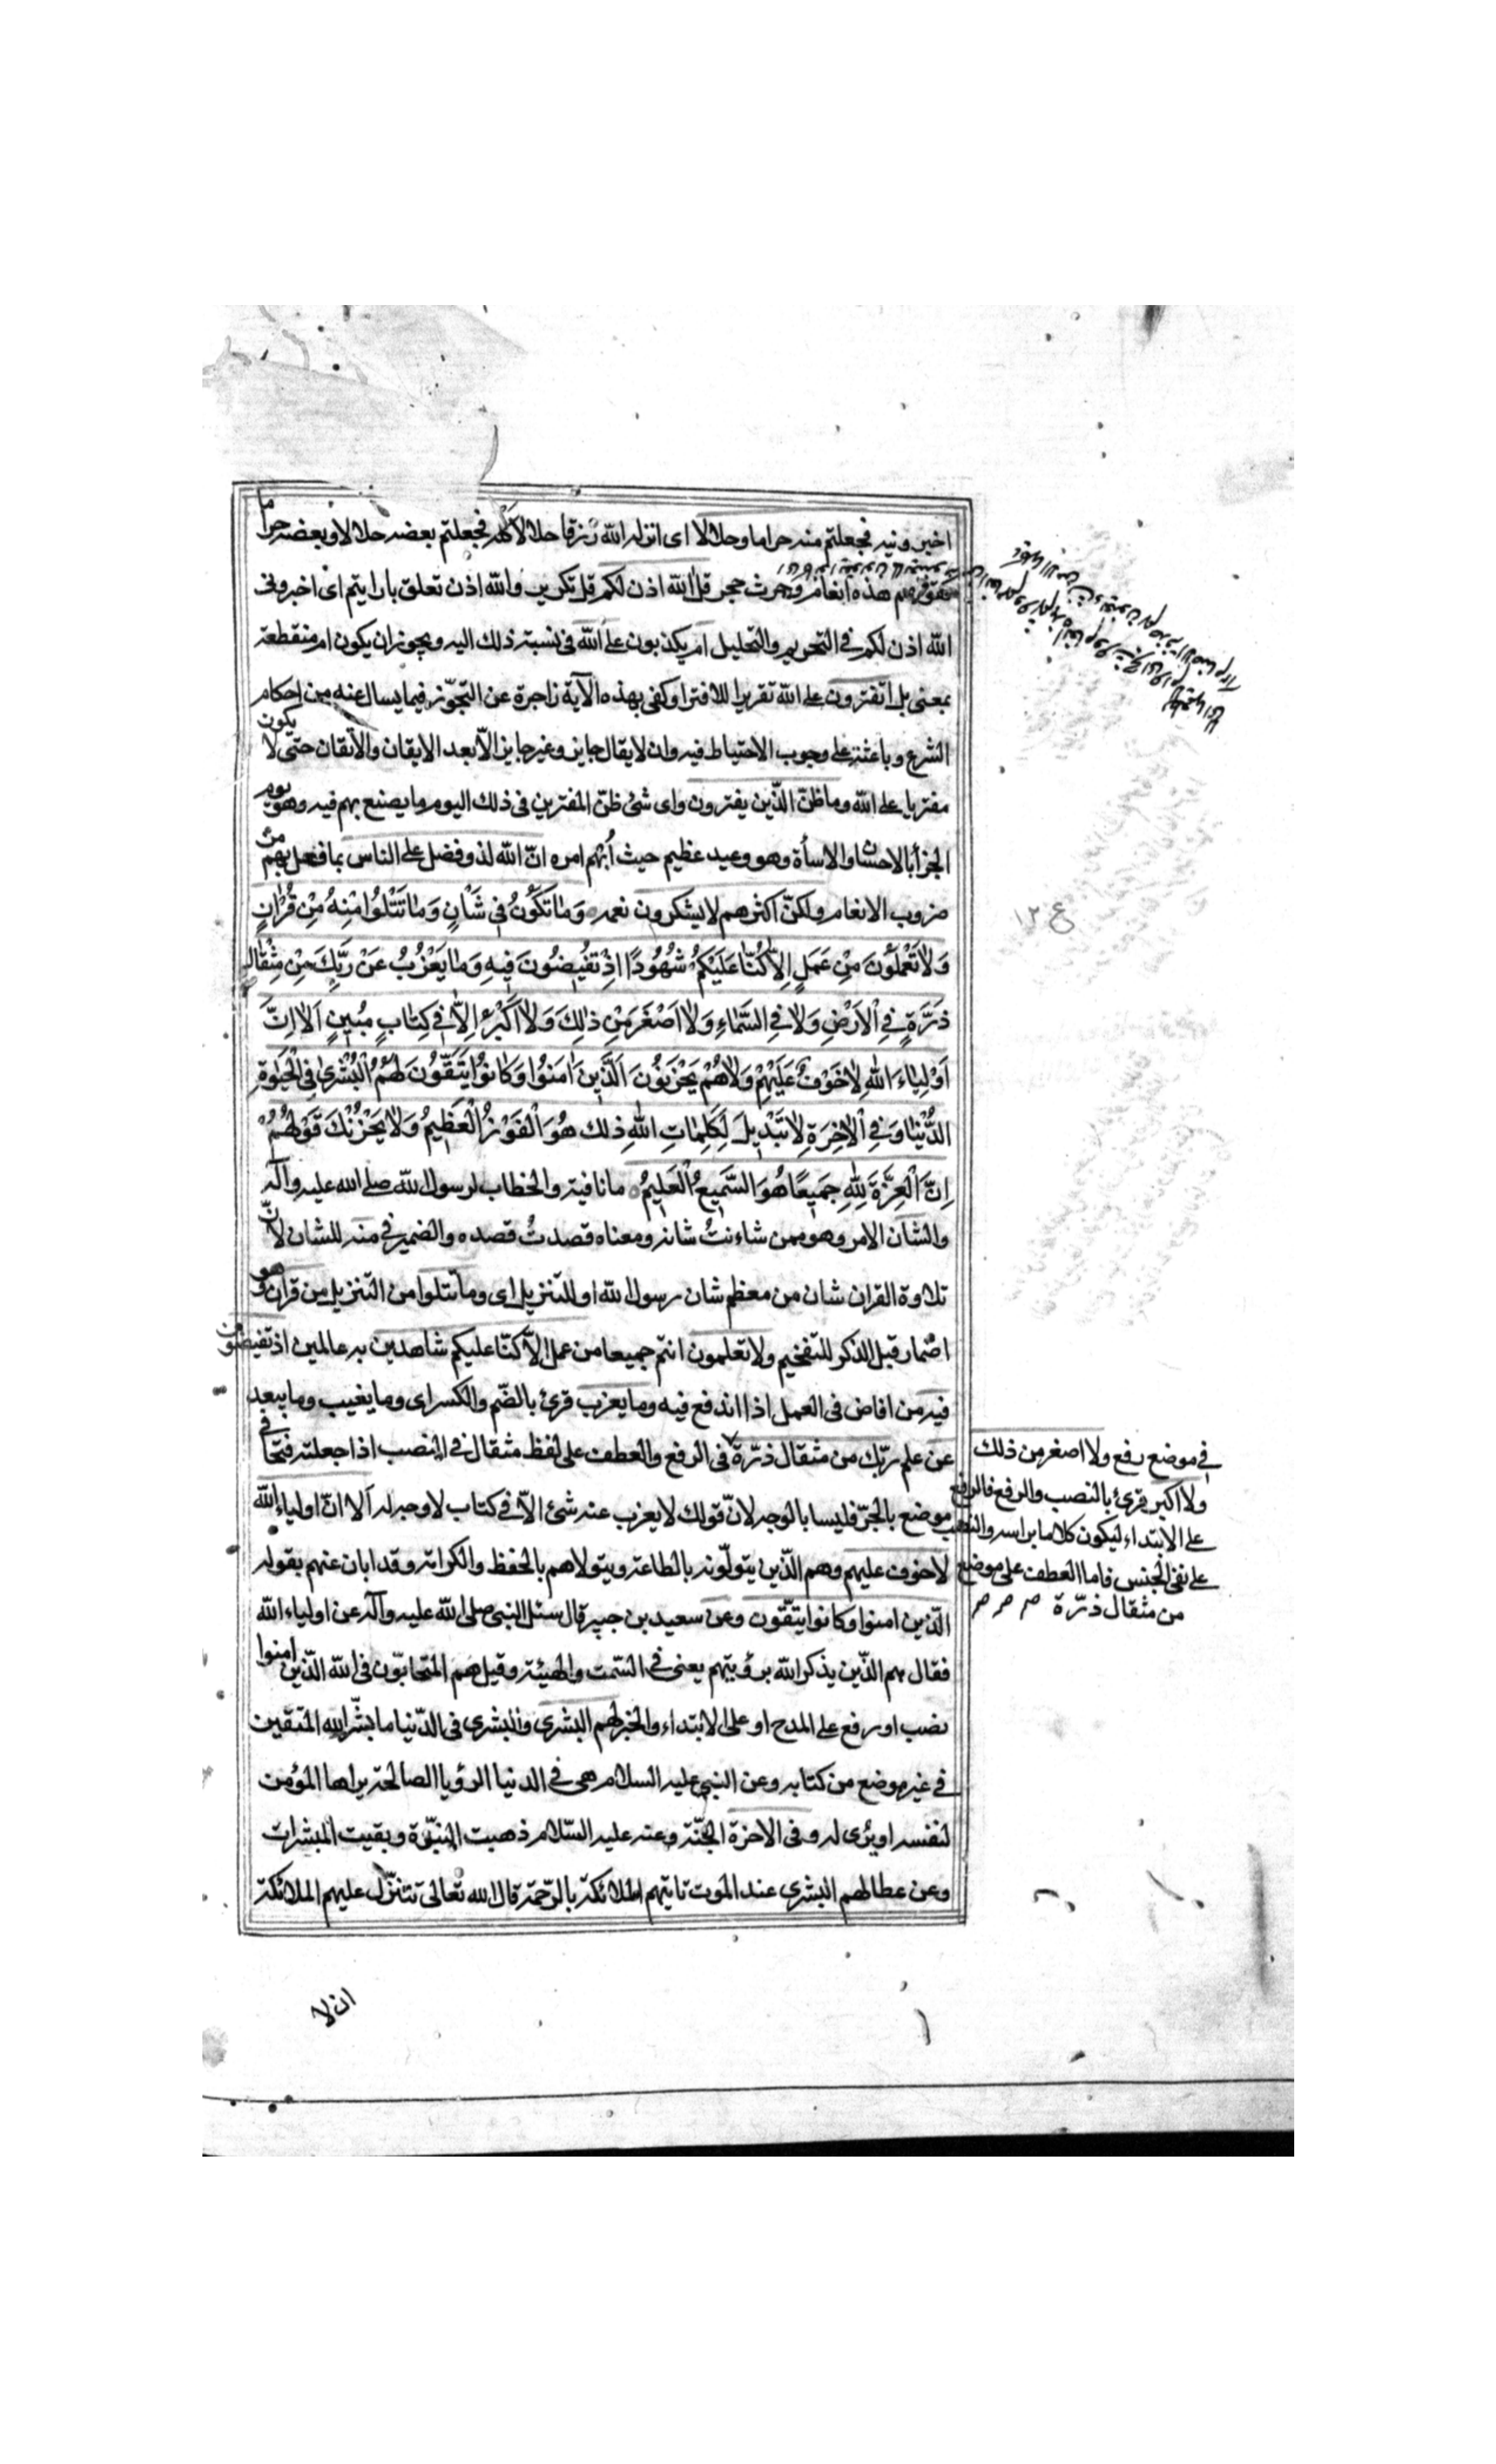 اخبرونيه فجعلتم منه حراما وحلالا اى انزله الله رزقا حلالا كله فجعلتم بعضه حلالا وبعضه حراما
كقولهم هذه انعام وحرث حجر قل الله اذن لكم قل تكرير والله اذن تعلق بارايتم اى اخبرونى
الله اذن لكم فى التحريم والتحليل ام يكذبون على الله فى نسبة ذلك اليه ويجوز ان يكون ام منقطعة
بمعنى بل اتفترون على الله تقريرا للافترا وكفى بهذه الآية زاجرة عن التجوّز فيما يسال عنه من احكام
الشرع وباعثة على وجوب الاحتياط فيه وان لا يقال جايز وغير جايز الّا بعد الايقان والاتقان حتى لا يكون
مفتريا على الله وما ظنّ الّذين يفترون واى شئ ظنّ المفترين فى ذلك اليوم ما يصنع بهم فيه وهو يوم
الجزأ بالاحسان والاسأة وهو وعيد عظيم حيث اُبهم امره انّ الله لذو فضل على الناس بما فعل بهم من
ضروب الانعام ولكنّ اكثرهم لا يشكرون نعمه وَمٰا تَكُوُنُ فِى شَأنٍ وَمٰا تَتْلُوا مِنْهُ مِنْ قُرْاٰنٍ
وَلٰا تَعْمَلُونَ مِنْ عَمَلٍ اِلّٰا كُنّٰا عَلَيْكُمْ شُهُودًا اِذْ تُفيضُونَ فِيهِ وَمٰا يَعْزُبُ عَنْ رَبِّكَ مِنْ مِثْقٰالِ
ذَرَّةٍ فِى الْاَرْضِ وَلٰا فِى السَّمٰاءِ وَلٰا اَصْغَرَ مِنْ ذٰلِكَ وَلٰا اَكْبَرَ اِلّٰا فِى كِتٰابٍ مُبينٍ اَلٰا اِنَّ
اَوْلِيٰاءَ اللهِ لٰا خَوْفٌ عَلَيْهِمْ وَلٰا هُمْ يَحْزَنُونَ اَلَّذِينَ اٰمَنُوا وَكٰانُوا يَتَّقُونَ لَهُمُ الْبُشْرىٰ فِى الْحَيٰوةِ
الدُّنْيٰا وَفِى الْاٰخِرَةِ لٰا تَبْدِيلَ لِكَلِمٰاتِ اللهِ ذٰلِكَ هُوَ الْفَوْزُ الْعَظِيمُ وَلٰا يَحْزُنْكَ قَوْلُهُمْ
اِنَّ الْعِزَّةَ لِلّٰهِ جَمِيعًا هُوَ السَّمِيعُ الْعَلِيمُ ما نافية والخطاب لرسول الله صلى الله عليه وآله
والشأن الامر وهو من شاءنتُ شانه ومعناه قصدتُ قصده والضمير فى منه للشان لانّ
تلاوة القران شان من معظم شان رسول الله او للتنزيل اى وما تتلوا من التنزيل من قرآن وهو
اضمار قبل الذكر للتفخيم ولا تعلمون انتم جميعا من عمل الّا كنّا عليكم شاهدين به عالمين اذ تفيضون
فيه من افاض فى العمل اذا اندفع فيه وما يعزب قرئ بالضّم والكسر اى وما يغيب وما يبعد
عن علم ربّك من مثقال ذرّة فى الرفع والعطف على لفظ مثقال فى النصب اذا جعلته فتحا فى
موضع بالجرّ فليسا بالوجه لانّ قولك لا يعزب عنه شئ الّا فى كتاب لا وجه له آلا انّ اولياء الله
لا خوف عليهم وهم الّذين يتولّونه بالطاعة ويتولاهم بالحفظ والكرامة وقد ابان عنهم بقوله
الّذين امنوا وكانوا يتّقون وعن سعيد بن جبير قال سئل النبى صلى الله عليه وآله عن اولياء الله
فقال هم الّذين يذكر الله برؤيتهم يعنى فى السّمت والهيئة وقيل هم المتحابّون فى الله الّذين امنوا
نصب او رفع على المدح او على الابتداء والخبر لهم البشرى والبشرى فى الدّنيا ما بشّر الله المتقين
فى غير موضع من كتابه وعن النبى عليه السلام هى فى الدنيا الرؤيا الصالحة يراها المؤمن
لنفسه او يرى له وفى الاخرة الجنّة وعنه عليه السّلام ذهبت النبوّة وبقيت المبشرات
وعن عطا لهم البشرى عند الموت تاتيهم الملائكة بالرّحمة قال الله تعالى تتنزّل عليهم الملائكة
ان لا
ع ١٢
فى موضع رفع ولا اصغر من ذلك
ولا اكبر قرئ بالنصب والرفع فالرفع
على الابتداء ليكون كلاما براسه والنصب
على نفى الجنس فاما العطف على موضع
من مثقال ذرّة